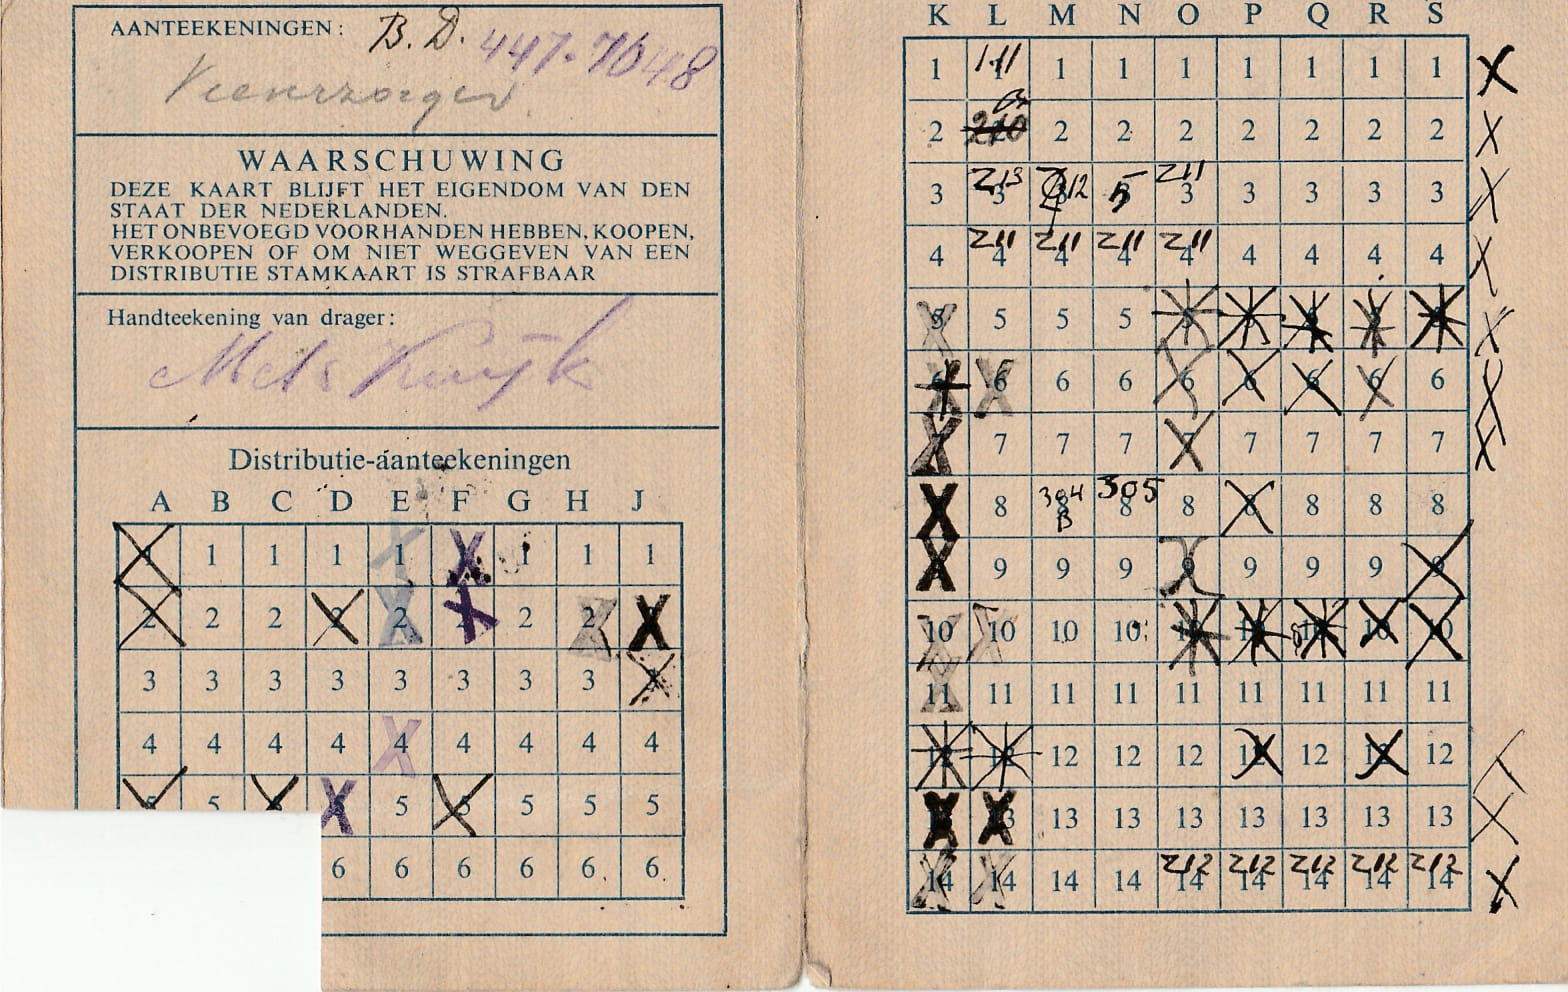 AANTEEKENINGEN: B. D. 447.7648
WAARSCHUWING
DEZE KAART BLIJFT HET EIGENDOM VAN DEN
STAAT DER NEDERLANDEN.
HET ONBEVOEGD VOORHANDEN HEBBEN, KOOPEN,
VERKOOPEN OF OM NIET WEGGEVEN VAN EEN
DISTRIBUTIE STAMKAART IS STRAFBAAR
Handteekening van drager:
Distributie-aanteekeningen
A B C D E F G H J
1 1 1 1 1 1 1
2 2 2 2 2 2 2
3 3 3 3 3 3 3 3 3
4 4 4 4 4 4 4 4 4
5 5 5 5 5 5 5
6 6 6 6 6 6
K L M N O P Q R S
1 1 1 1 1 1 1 1
2 2 2 2 2 2 2 2
3 213 3 212 5 211 3 3 3 3 3
4 211 4 211 4 211 4 211 4 4 4 4 4
5 5 5 5
6 6 6 6 6 6 6 6
7 7 7 7 7 7 7
8 304 8 B 305 8 8 8 8 8
9 9 9 9 9 9
10 10 10 10
11 11 11 11 11 11 11 11 11
12 12 12 12 12
13 13 13 13 13 13 13
14 14 14 14 212 14 212 14 212 14 212 14 212 14